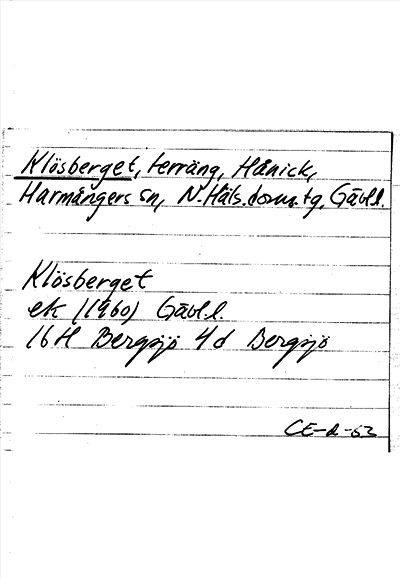 Klösberget, terräng, Hånick,
Harmångers sn, N. Häls. doms.tg, Gävl.l.
Klösberget
ek (1960) Gävl.l.
16H Bergsjö 4d Bergsjö